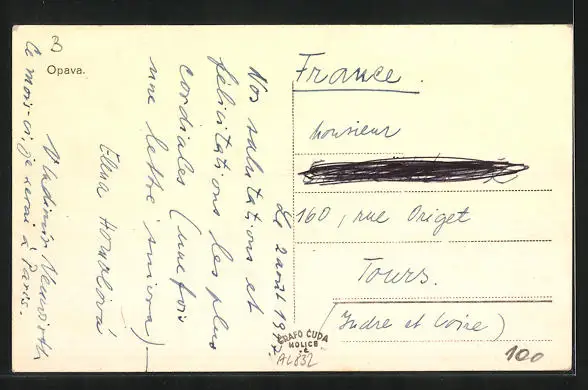 3
Opava.
Le 2 août 19
Nos salutations et
félicitations les plus
cordiales (une fois
une lettre suivra)
Elena
Vladimír
Ce mois-ci, je serai à Paris.
France.
Monsieur
160, rue Origet
Tours.
(Indre et Loire)
GRAFO ČUDA
HOLICE
AL832
100